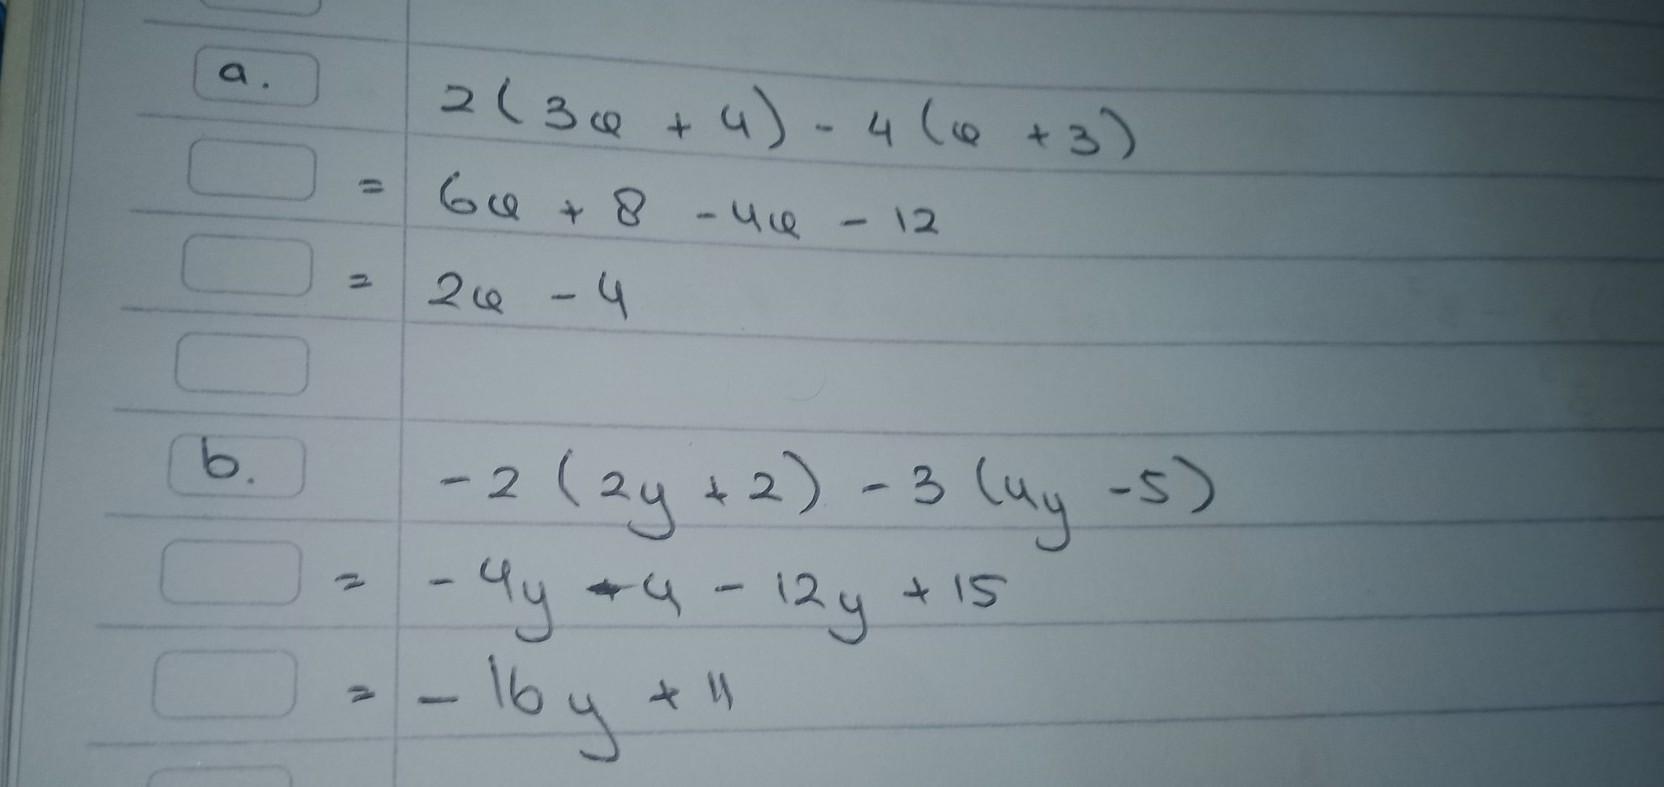 a. 2(3φ + 4) - 4(φ + 3)
= 6φ + 8 - 4φ - 12
= 2φ - 4
b. -2(2y + 2) - 3(4y - 5)
= -4y - 4 - 12y + 15
= -16y + 11